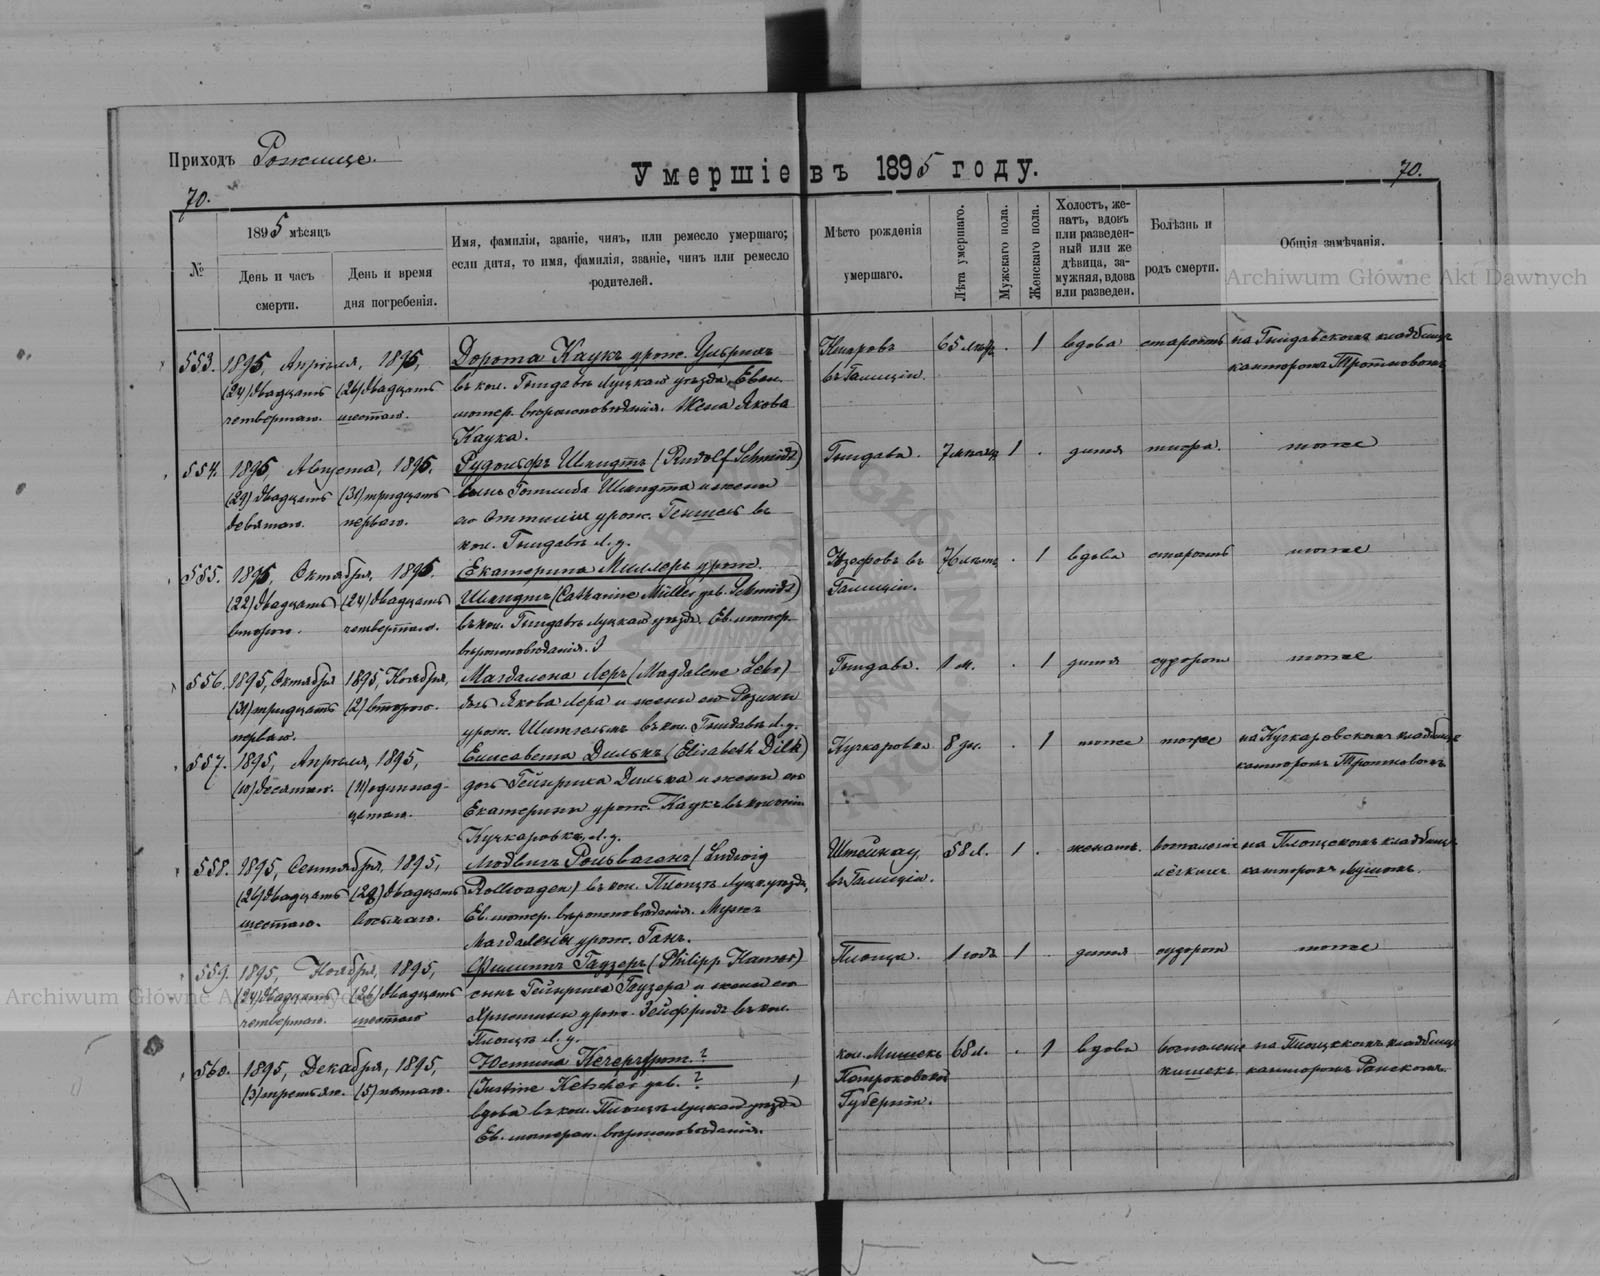 Приходъ Рожище.
Умершіе въ 1895 году.
70.
70.
№
1895 мѣсяцъ
День и часъ
смерти.
День и время
дня погребенія.
Имя, фамилія, званіе, чинъ, или ремесло умершаго;
если дитя, то имя, фамилія, званіе, чинъ или ремесло
родителей.
Мѣсто рожденія
умершаго.
Лѣта умершаго.
Мужскаго пола.
Женскаго пола.
Холостъ, же-
натъ, вдовъ
или разведен-
ный или же
дѣвица, за-
мужняя, вдова
или разведен.
Болѣзнь и
родъ смерти.
Общія замѣчанія.
Archiwum Główne Akt Dawnych
553. 1895, Апрѣля, 1895, Дорота Каукъ урож. 65 лѣтъ . 1 вдова старость на кладбищѣ
(24) двадцать (26) двадцать въ кол. Гнидавѣ Луцкаго уѣзда, Еван. въ Галиціи. канторомъ
четвертаго. шестаго. лютер. вѣроисповѣданія. Жена Якова
Каука.
554. 1895, Августа, 1895, Рудольфъ Шмидтъ (Rudolf Schmidt) Гнидава. 1 . дитя тоже
(29) двадцать (31) тридцать сынъ Готлиба Шмидта и жены
девятаго. перваго. его Оттиліи урож. въ
кол. Гнидавѣ Л. у.
555. 1895, Октября, 1895. Екатерина Миллеръ урож. въ 76 лѣтъ . 1 вдова старость тоже
(22) двадцать (24) двадцать Шмидтъ (Catharine Müller geb. Schmidt) Галиціи.
втораго. четвертаго. въ кол. Гнидавѣ Луцкаго уѣзда. Ев. лютер.
вѣроисповѣданія.
556. 1895, Октября 1895, Ноября, Магдалена Леръ (Magdalene Lehr) Гнидава. 1 м. . 1 дитя судороги тоже
(31) тридцать (2) втораго. дочь Якова Лера и жены его Розины
перваго. урож. въ кол. Гнидавѣ Л. у.
557. 1895, Апрѣля, 1895, Елисавета Дилькъ (Elisabeth Dilk) Кучкаровка. 8 дн. . 1 тоже тоже на Кучкаровскомъ кладбищѣ
(10) десятаго. (11) одиннад- дочь Гейнриха Дилька и жены его канторомъ
цатаго. Екатерины урож. Каукъ въ колоніи
Кучкаровкѣ, Л. у.
558. 1895, Сентября, 1895, Людвигъ Рольвагенъ (Ludwig Штейнау, 58 л. 1 . женатъ. воспаленіе на кладбищѣ
(26) двадцать (28) двадцать Rollwagen) въ кол. Луцк. уѣзда, въ Галиціи. лёгкихъ канторомъ
шестаго. восьмаго. Ев. лютер. вѣроисповѣданія. Мужъ
Магдалены урож. Ганъ.
559. 1895, Ноября, 1895, Филиппъ Гаузеръ (Philipp 1 годъ 1 . дитя судороги тоже
Archiwum Główne Akt Dawnych
(24) двадцать (26) двадцать сынъ Гейнриха Гаузера и жены его
четвертаго. шестаго Христины урож. Зейфридъ въ кол.
Л. у.
560. 1895, Декабря, 1895, Юстина урож. ? кол. 68 л. . 1 вдова воспаленіе на кладбищѣ
(3) третьяго. (5) пятаго. (Justine Ketscher geb. ? Петроковской кишекъ канторомъ
вдова въ кол. Луцкаго уѣзда Губерніи.
Ев. лютеран. вѣроисповѣданія.